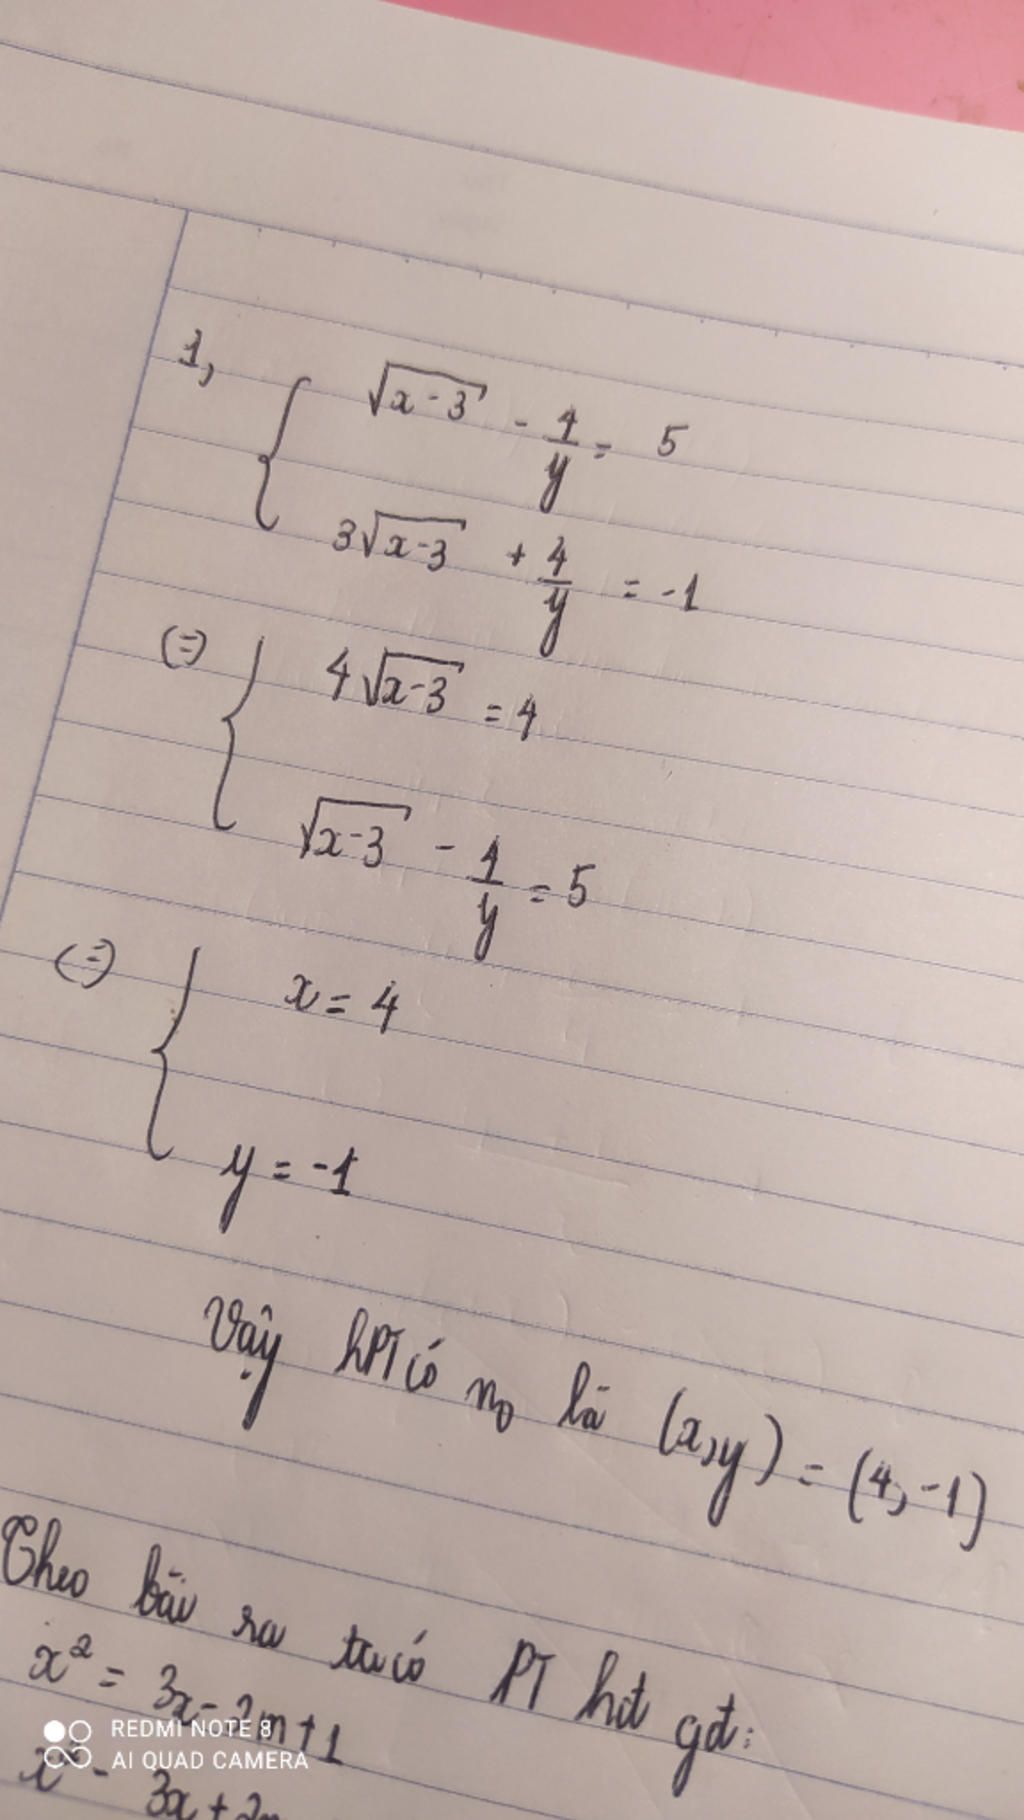 1,
√(x-3) - 4/y = 5
3√(x-3) + 4/y = -1
(=)
4√(x-3) = 4
√(x-3) - 4/y = 5
(=)
x = 4
y = -1
Vậy hPT có n₀ là (x,y) = (4,-1)
Theo bài ra ta có PT hđ gđ:
x² = 3x - 2m + 1
REDMI NOTE 8
AI QUAD CAMERA
x² - 3x + 2m